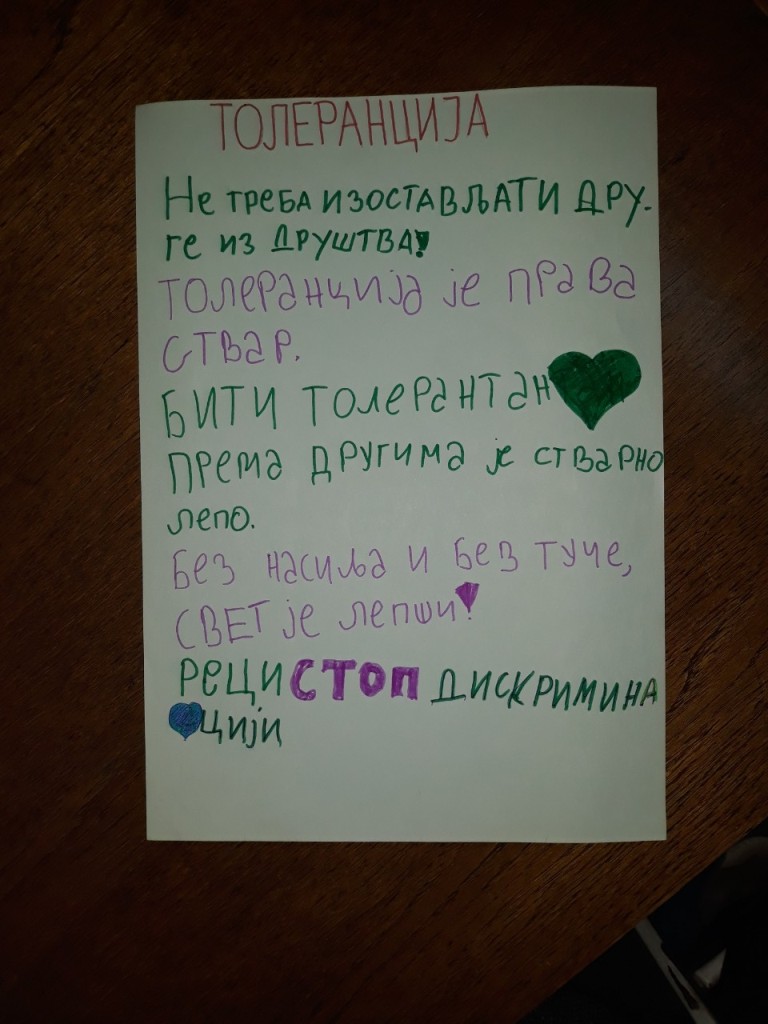 ТОЛЕРАНЦИЈА
Не ТРЕБА ИЗОСТАВЉАТИ ДРУ-
ГЕ ИЗ ДРУШТВА!
ТОЛЕРАНЦИЈА ЈЕ ПРАВА
СТВАР.
БИТИ ТОЛЕРАНТАН
ПРЕМА ДРУГИМА ЈЕ СТВАРНО
ЛЕПО.
БЕЗ НАСИЉА И БЕЗ ТУЧЕ,
СВЕТ ЈЕ ЛЕПШИ!
РЕЦИ СТОП ДИСКРИМИНА
ЦИЈИ